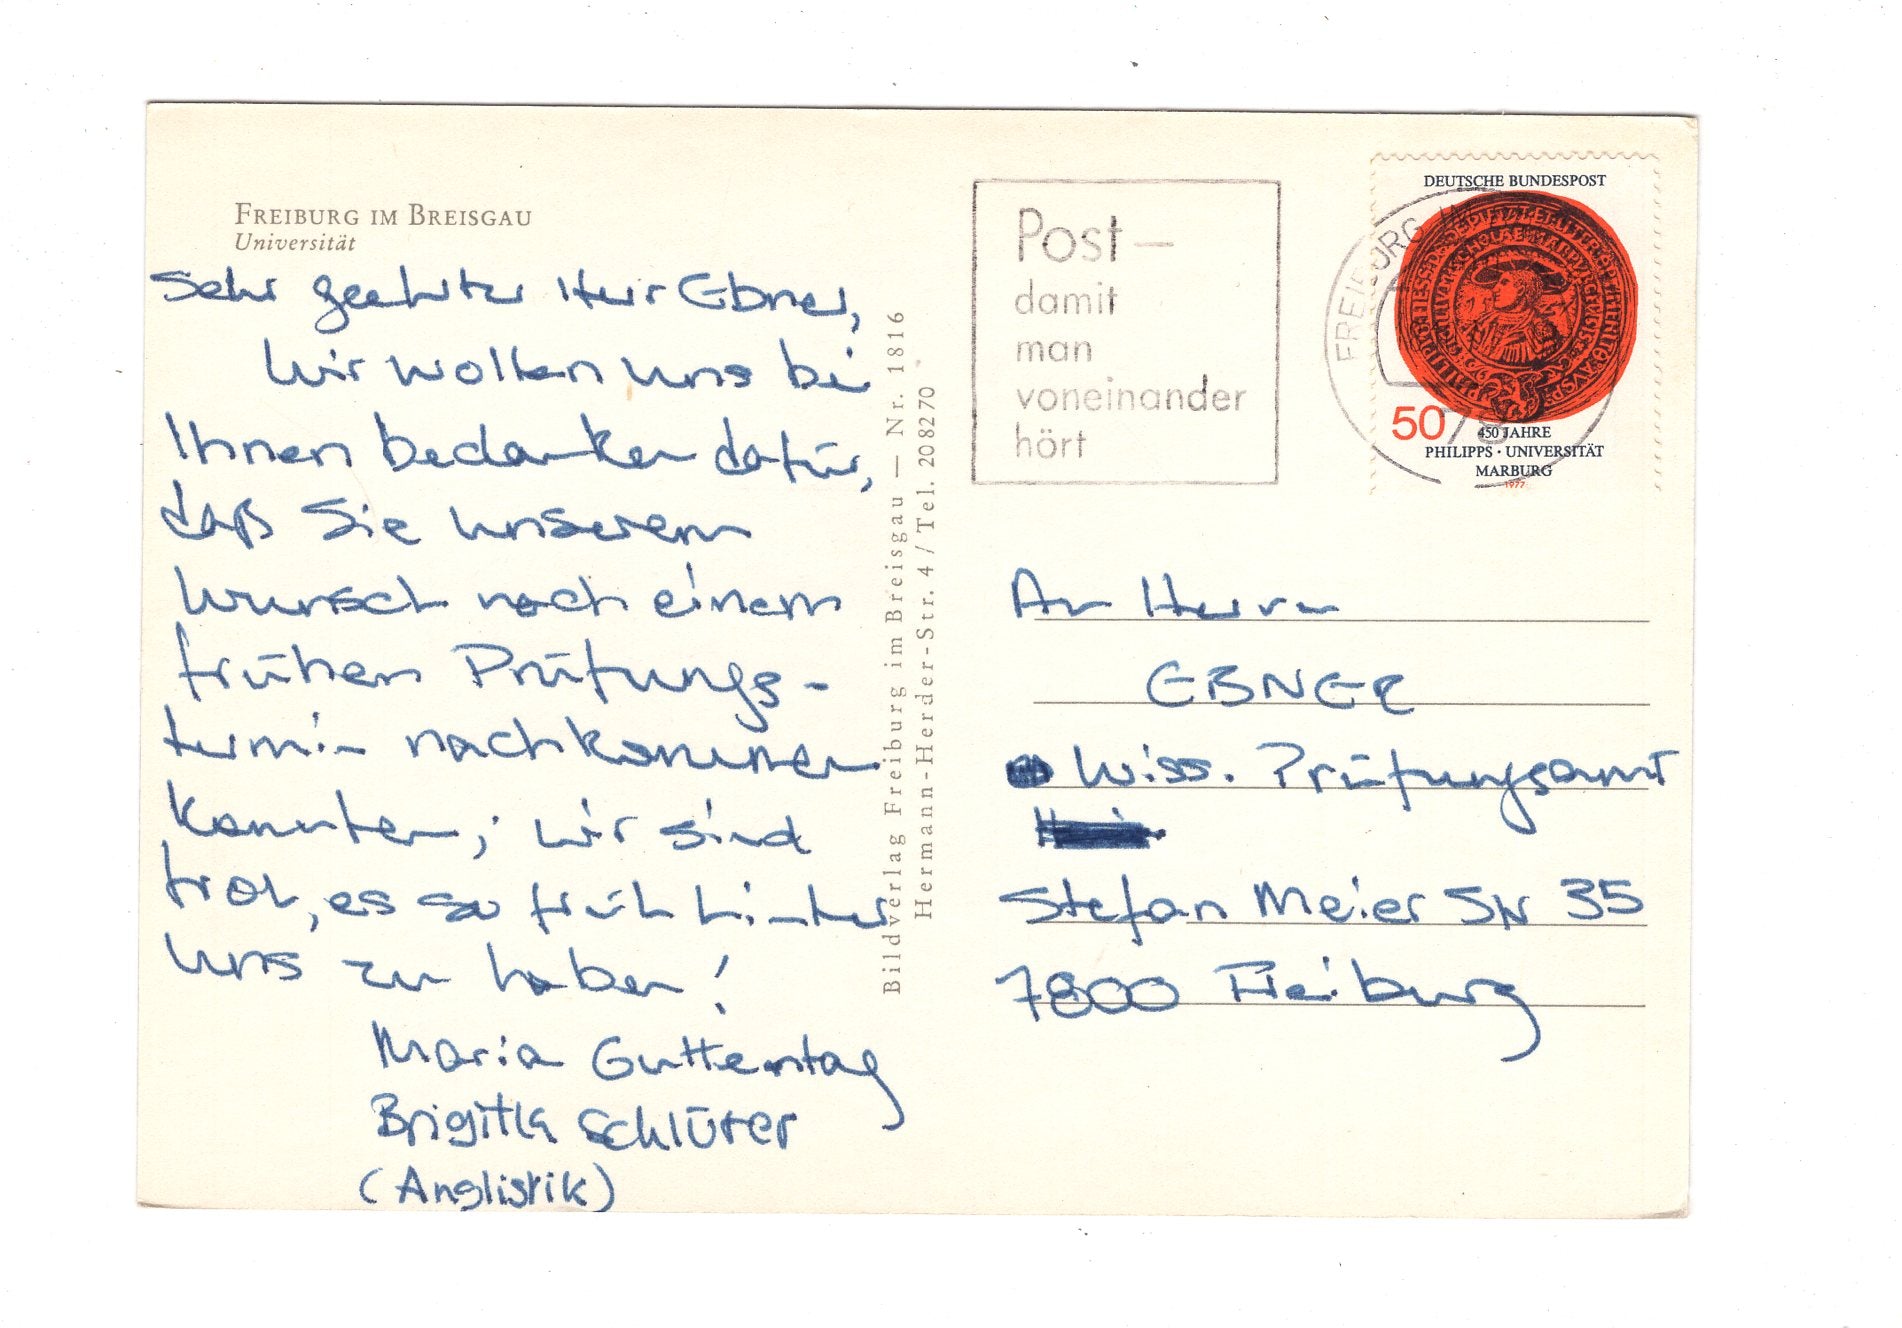 FREIBURG IM BREISGAU
Universität
Sehr geehrter Herr Ebner,
wir wollen uns bei
Ihnen bedanken dafür,
daß Sie unserem
Wunsch nach einem
frühen Prüfungs-
termin nachkommen
konnten; wir sind
froh, es so früh hinter
uns zu haben!
Maria Guttentag
Brigitte Schlüter
(Anglistik)
Bildverlag Freiburg im Breisgau — Nr. 1816
Hermann-Herder-Str. 4 / Tel. 20 82 70
Post —
damit
man
voneinander
hört
FREIBURG
78
DEUTSCHE BUNDESPOST
50
450 JAHRE
PHILIPPS · UNIVERSITÄT
MARBURG
1977
An Herrn
EBNER
Wiss. Prüfungsamt
Stefan Meier Str 35
7800 Freiburg